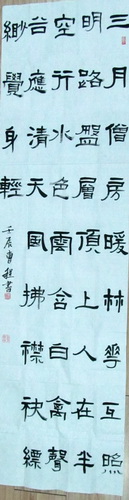 三月僧房暖林華互照
明路盤層頂上人在半
空行水色雲含白禽聲
谷應清天風拂襟袂縹
緲覺身輕
壬辰曹書